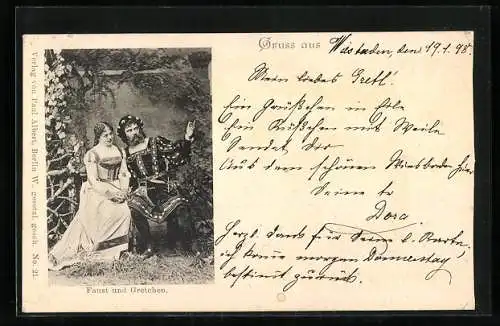 Gruss aus Wiesbaden, den 19.1.98.
Mein liebes Gretl!
Ein Grüßchen in Eile
Ein Küßchen mit Weile
Sendet Dir
Aus dem schönen Wiesbaden hier
Deine tr
Dora.
Herzl. Dank für Deine l. Karte,
ich komme morgen Donnerstag
bestimmt zurück.
Faust und Gretchen.
Verlag von Paul Albert, Berlin W. gesetzl. gesch. No. 21.